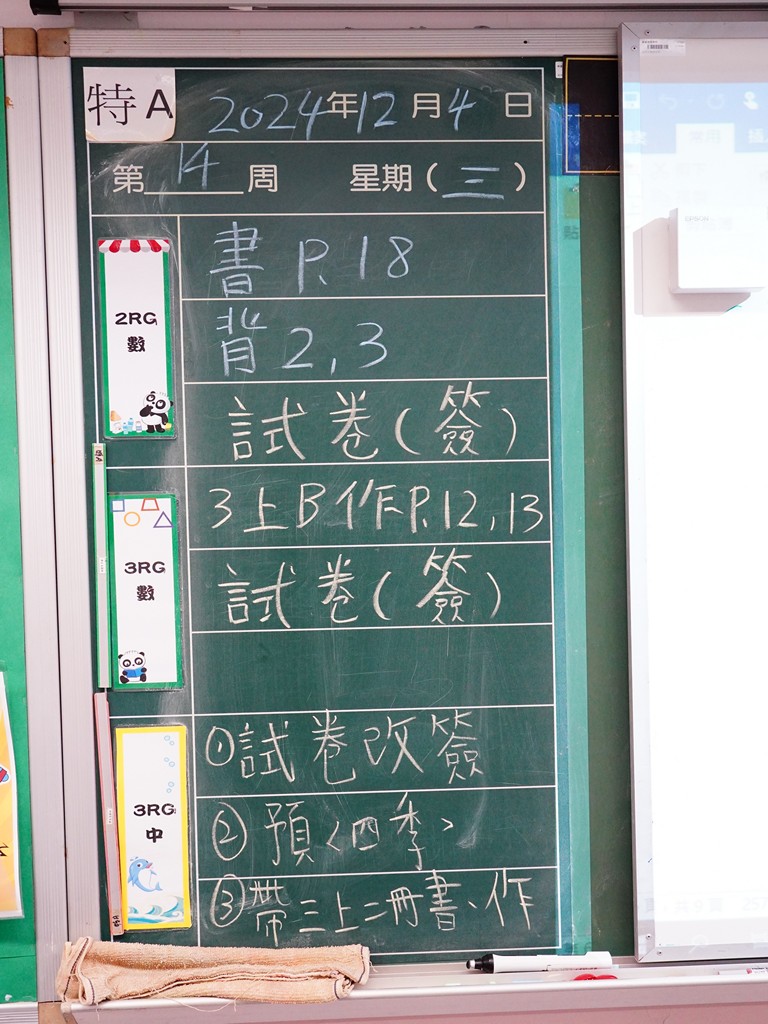 特A 2024年12月4日
第14周 星期(三)
2RG
數
書 P.18
背 2,3
試卷(簽)
3RG
數
3上B作P.12,13
試卷(簽)
3RG
中
①試卷改簽
②預<四季>
③帶三上二冊書、作